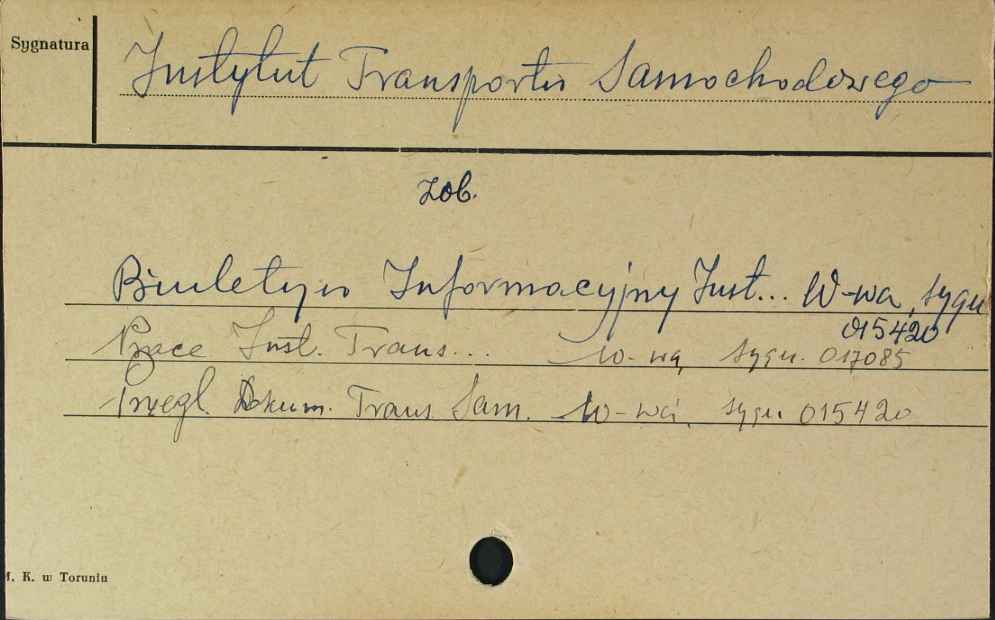 Sygnatura
Instytut Transportu Samochodowego
zob.
Biuletyn Informacyjny Inst... W-wa, sygn
015420
Prace Inst. Trans... W-wa, sygn. 017085
Przegl. Dokum. Trans Sam. W-wa, sygn 015420
M. K. w Toruniu